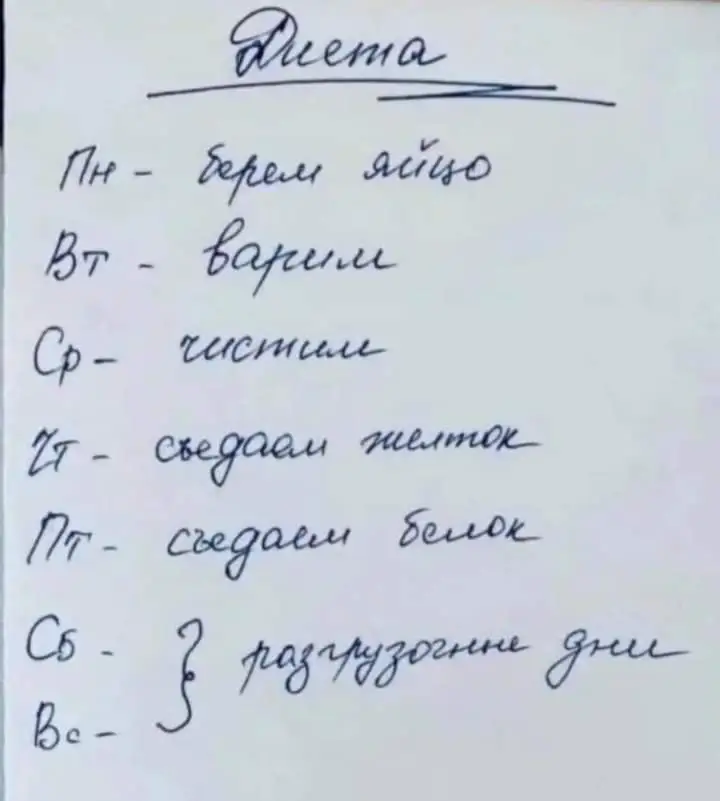 Диета
Пн - берем яйцо
Вт - варим
Ср - чистим
Чт - съедаем желток
Пт - съедаем белок
Сб -
} разгрузочные дни
Вс -